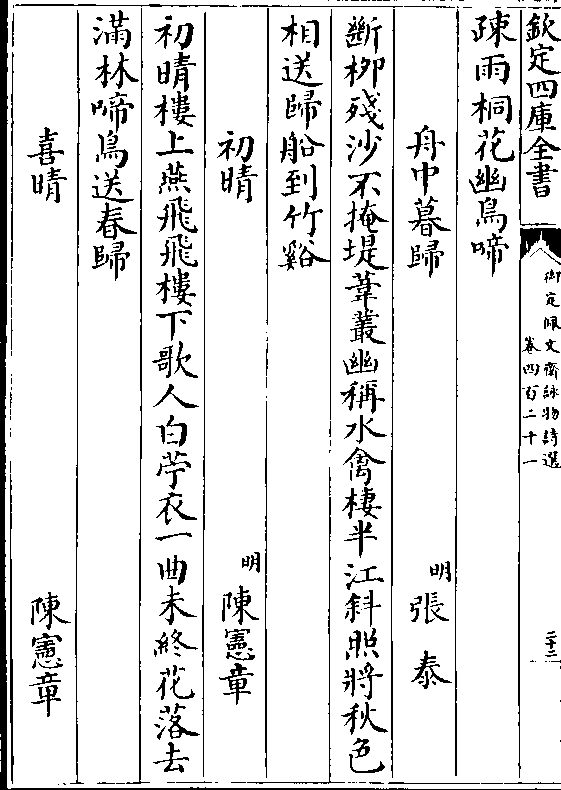 欽定四庫全書
御定佩文齋詠物詩選
卷四百二十一
二十二
疎雨桐花幽鳥啼
舟中暮歸
明張泰
斷栁殘沙不掩堤葦叢幽稱水禽棲半江斜照將秋色
相送歸船到竹谿
初晴
明陳憲章
初晴樓上燕飛飛樓下歌人白苧衣一曲未終花落去
滿林啼鳥送春歸
喜晴
陳憲章